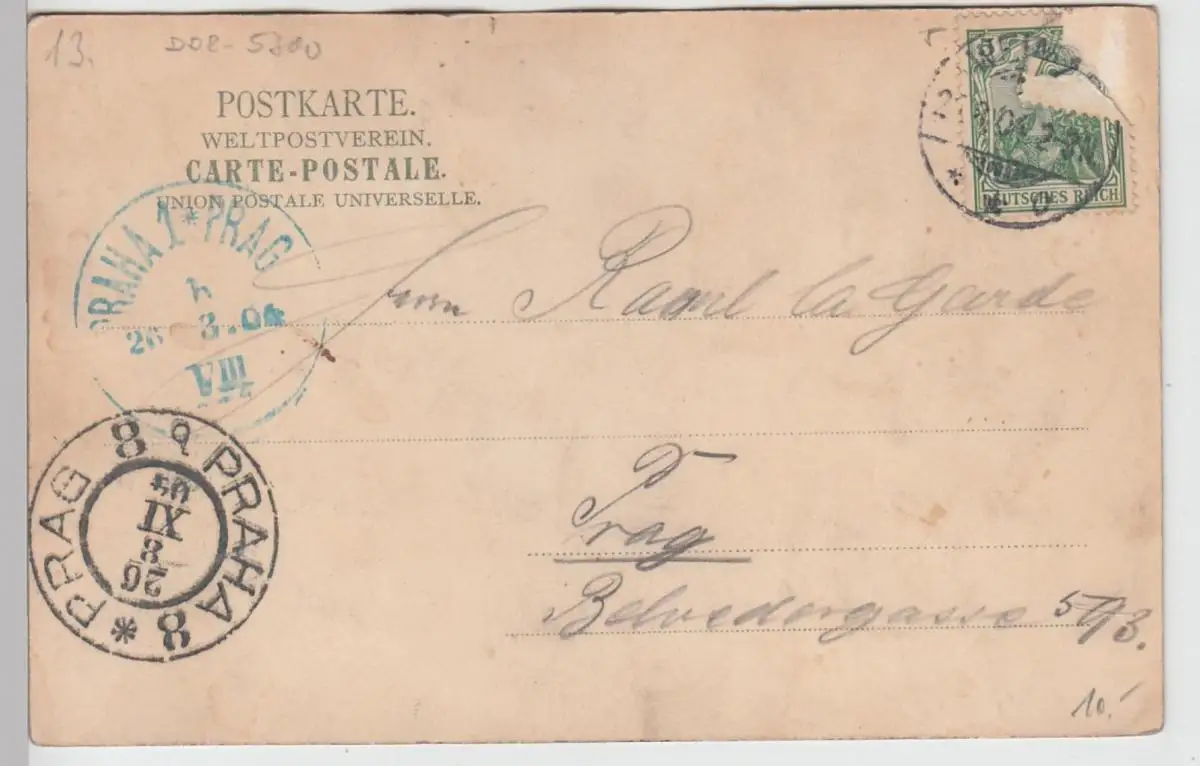 13.
D08-5800
POSTKARTE.
WELTPOSTVEREIN.
CARTE-POSTALE.
UNION POSTALE UNIVERSELLE.
DEUTSCHES REICH
PRAHA 1 * PRAG
26 3.04
VIII
Herrn Raoul la Garde
Prag
Belvedergasse
PRAG 8 PRAHA 8 *
26
3
IX
04
10.